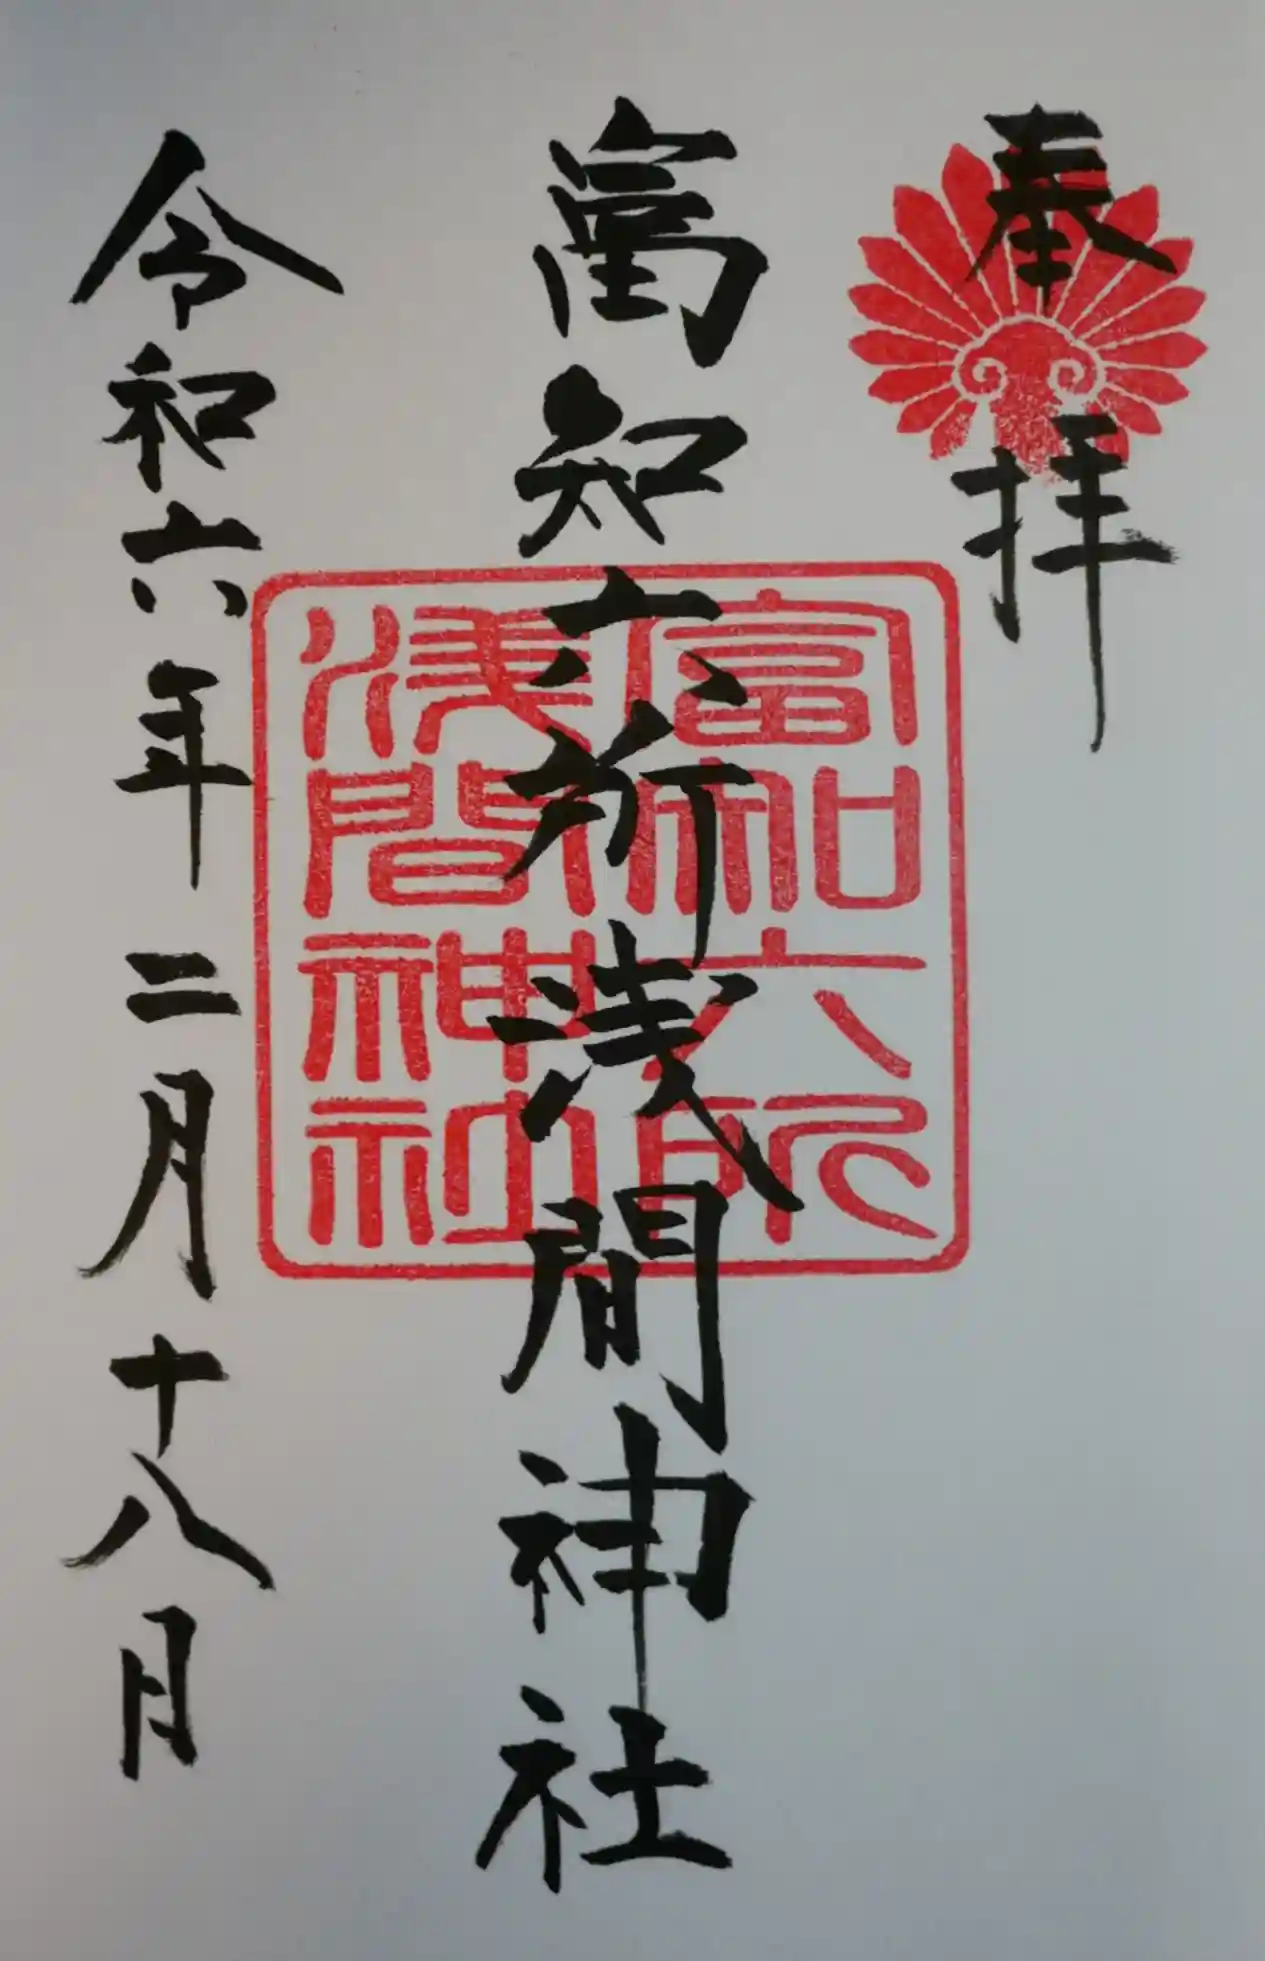 奉拝
富知六所浅間神社
富知六所
浅間神社
令和六年二月十八日